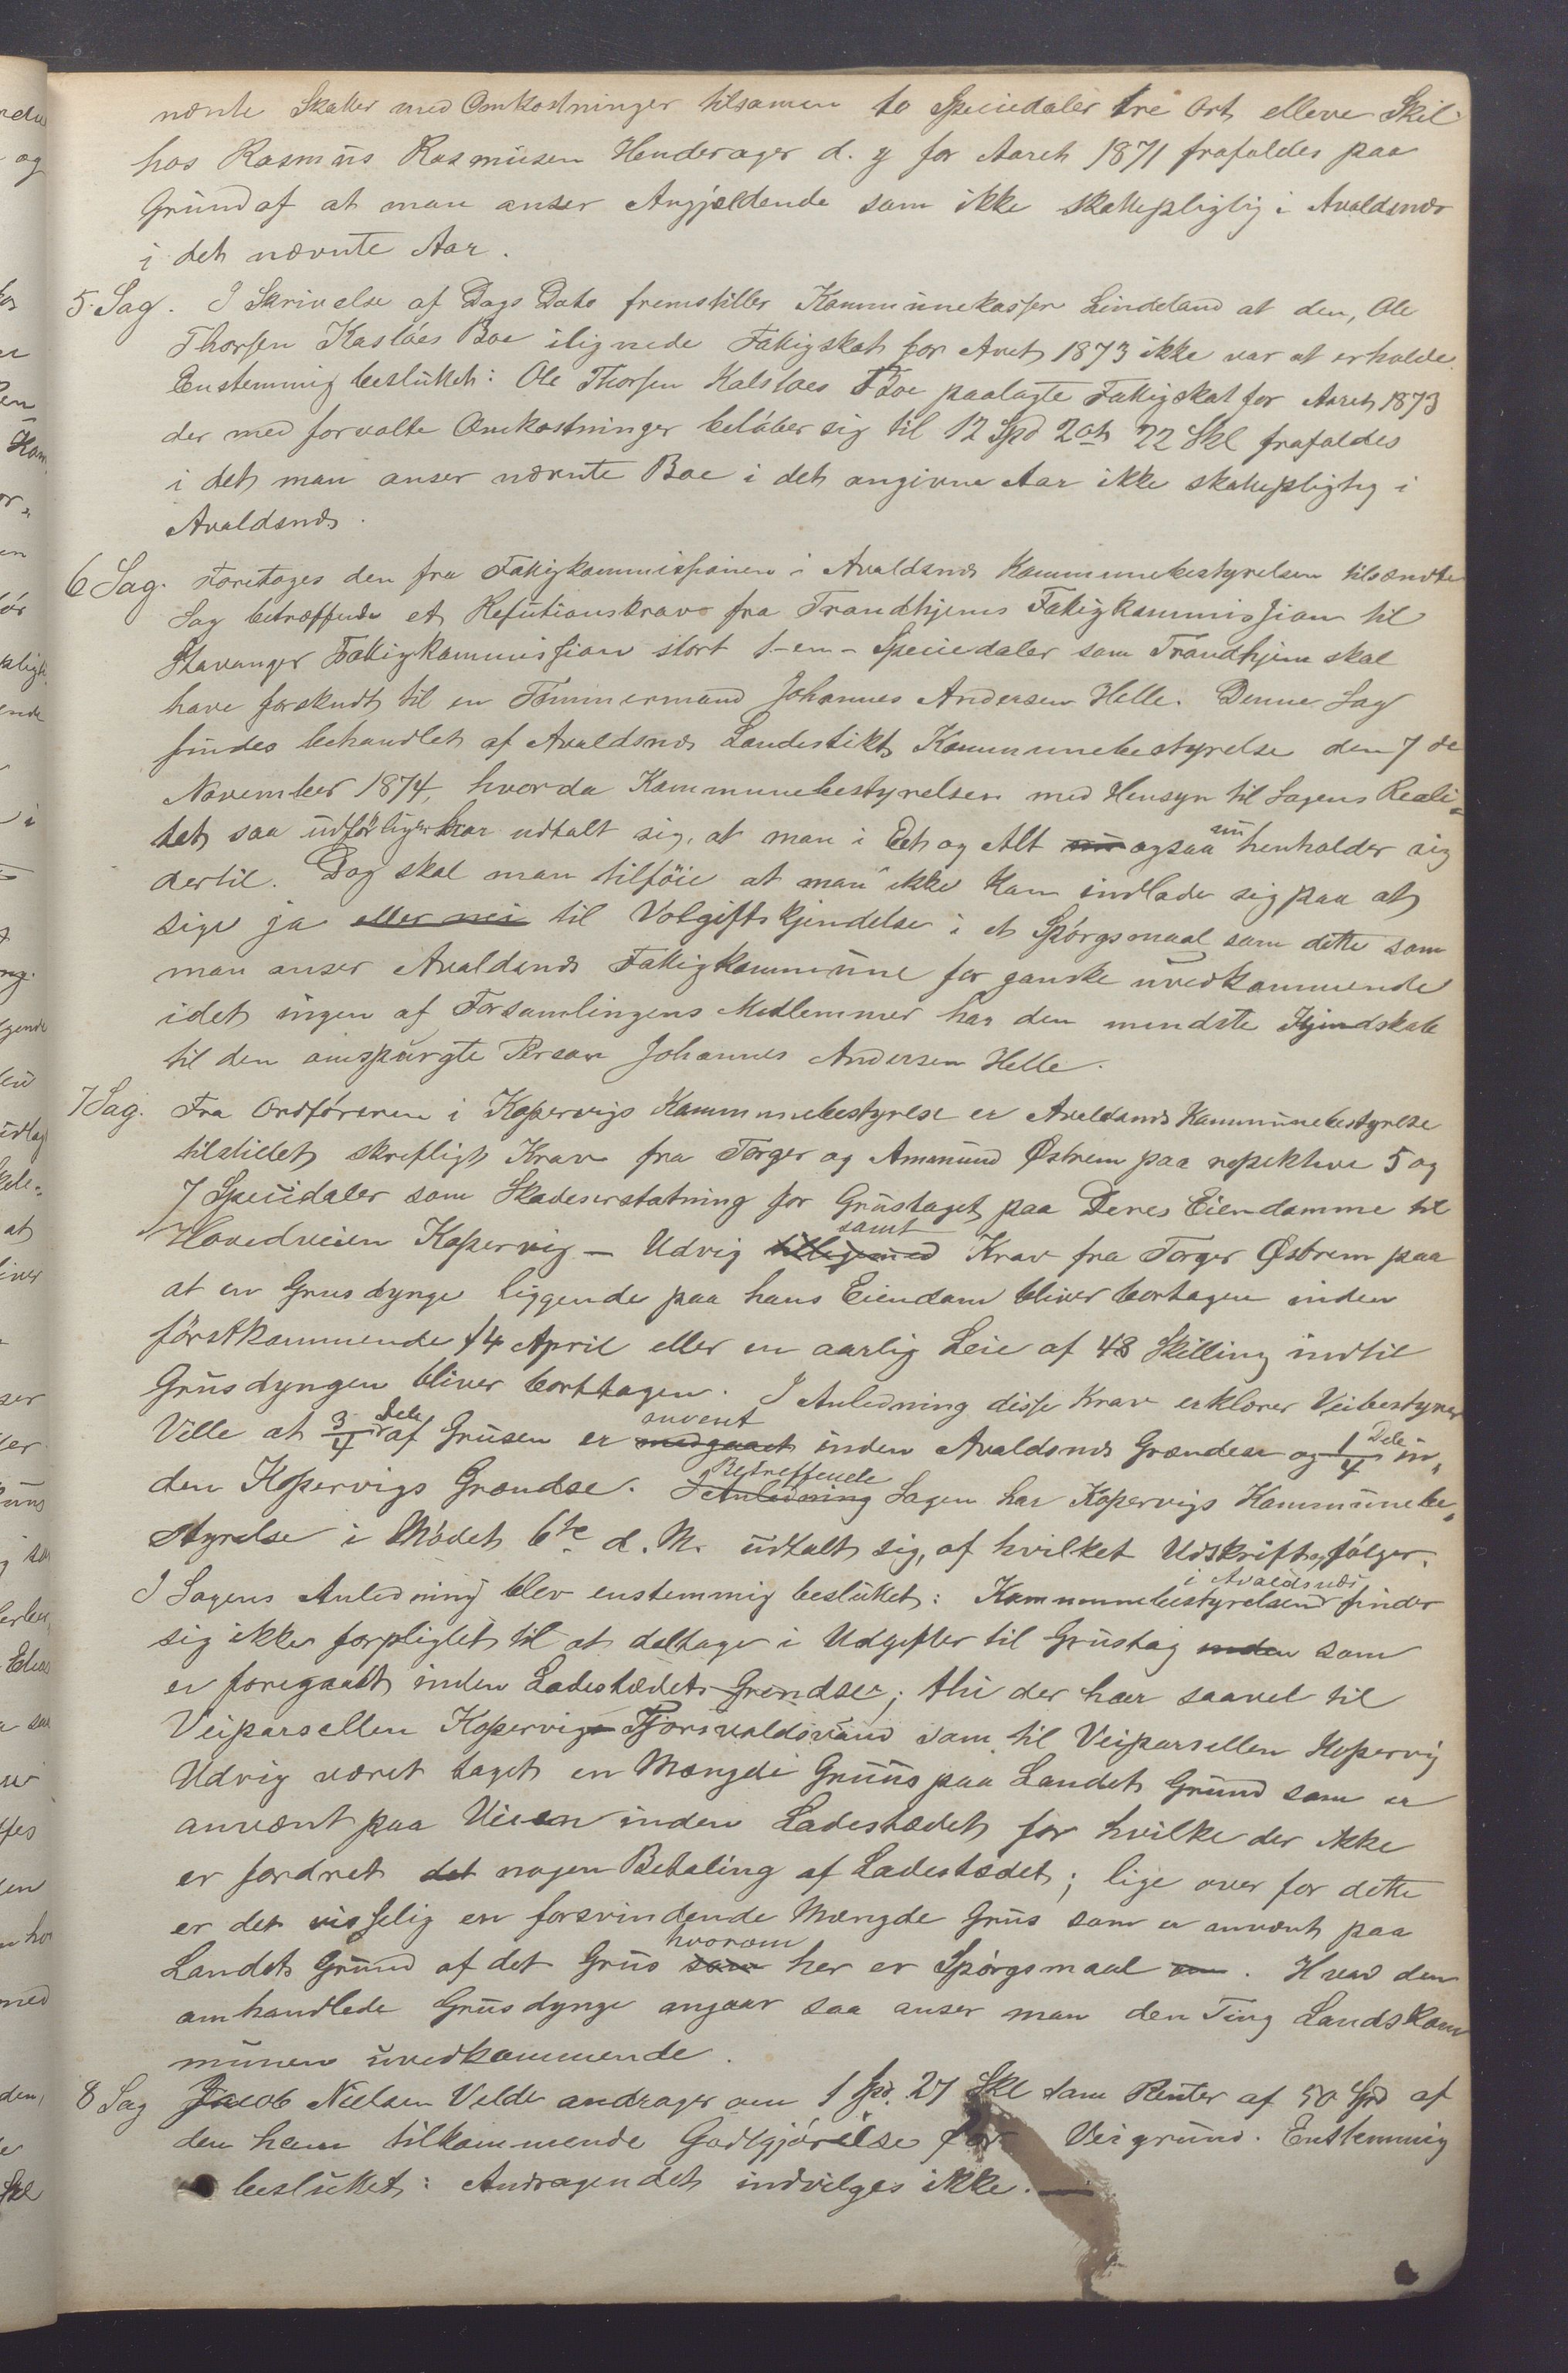 nævnte Skatter med Omkostninger tilsamen to Speciedaler tre Ort elleve Skil
hos Rasmus Rasmusen Henderager d. y for Aaret 1871 frafaldes paa
Grund af at man anser Angjældende som ikke skattepligtig i Avaldsnæs
i det nævnte Aar.
5. Sag. I Skrivelse af Dags Dato fremstiller Kommunekasser Lindeland at den, Ole
Thorsen Kaslöes Boe ilignede Fattigskat for Aaret 1873 ikke var at erholde.
Eenstemmig besluttet: Ole Thorsen Kalstoes Boe paalagte Fattigskat for Aaret 1873
der med forvolte Omkostninger belöber sig til 12 Spd 2 ort 22 Skl frafaldes
i det man anser nævnte Boe i det angivne Aar ikke skattepligtig i
Avaldsnæs.
6 Sag. Foretages den fra Fattigkommissionen i Avaldsnæs Kommunebestyrelsen tilsendte
Sag betræffende et Refutionskrav fra Trondhjems Fattigkommission til
Stavanger Fattigkommission stort 1-en- Speciedaler som Trondhjem skal
have forskudt til en Tömmermand Johannes Andersen Helle. Denne Sag
findes behandlet af Avaldsnæs Landestikts Kommunebestyrelse den 7 de
November 1874, hvorda Kommunebestyrelsen med Hensyn til Sagens Reali-
tet saa udförligen har udtalt sig, at man i Eet og Alt nu ogsaa nu henholder sig
dertil. Dog skal man tilföie at man ikke kan indlade sig paa at
sige ja eller nei til Volgiftskjendelse i et Spörgsmaal som dette som
man anser Avaldsnæs Fattigkommune for ganske uvedkommende
idet ingen af Forsamlingens Medlemmer har den mindste Kjendskab
til den omspurgte Person Johannes Andersen Helle.
7 Sag. Fra Ordföreren i Kopervigs Kommunebestyrelse er Avaldsnæs Kommunebestyrelse
tilstillet skrifligt Krav fra Torger og Ammund Østrem paa respektive 5 og
7 Speciedaler som Skadeserstatning for Grustaget paa Deres Eiendomme til
Hovedveien Kopervig – Udvig tilligemed samt Krav fra Torger Østrem paa
at en Grusdynge liggende paa hans Eiendom bliver borttagen inden
förstkommende 14 April eller en aarlig Leie af 48 Skilling indtil
Grusdyngen bliver borttagen. I Anledning disse Krav erklærer Veibestyrer
Ville at 3/4 Dele af Grusen er medgaaet anvent inden Avaldsnæs Grændser og 1/4 Dele in-
den Kopervigs Grændse. I Anledning Betreffende Sagen har Kopervigs Kommunebe-
styrelse i Mödet 6te d. M. udtalt sig, af hvilket Udskrift fölger.
I Sagens Anledning blev enstemmig besluttet: Kommunebestyrelsen i Avaldsnæs finder
sig ikke forpligtet til at deltage i Udgifter til Grustag inden som
er foregaadt inden Ladestedets Grendser; thi der har saavel til
Veiparsellen Kopervig- Fjorsvoldsvand som til Veiparsellen Kopervig
Udvig været taget en Mængde Gruus paa Landets Grund som er
anvent paa Veien inden Ladestedet for hvilke der ikke
er fordret det nogen Betaling af Ladestedet; lige over for dette
er det visselig en forsvindende Mængde Grus som er anvent paa
Landets Grund af det Grus som hvorom her er Spörgsmaal om. Hvad den
omhandlede Grusdynge angaar saa anser man den Ting Landskom
munen uvedkommende.
8 Sag Jacob Nielsen Velde andrager om 1 Spd. 27 Skl som Renter af 50 Spd af
den ham tilkommende Godtgjörelse for Veigrund. Enstemmig
besluttet: Andragendet indvilges ikke.—